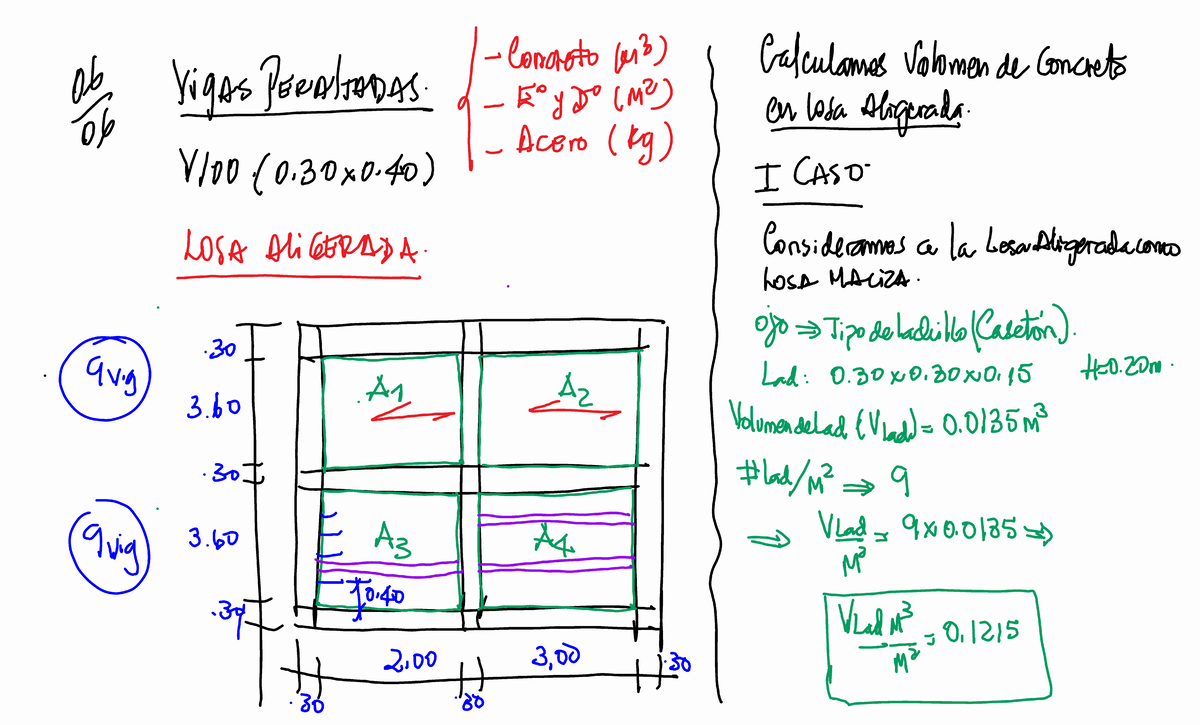 06/06
VIGAS PERALTADAS.
- Concreto (M³)
- E° y D° (M²)
- Acero (Kg)
V100 (0.30x0.40)
LOSA ALIGERADA.
.30
9 vig
3.60
.30
9 vig
3.60
.30
A1
A2
A3
A4
0.40
2.00
3.00
.30
.30
.30
Calculamos Volumen de Concreto
en Losa Aligerada.
I CASO
Consideramos a la Losa Aligerada como
LOSA MACIZA.
Ojo ⇒ Tipo de ladrillo (Casetón).
Lad: 0.30x0.30x0.15 H=0.20m.
Volumen de Lad (VLad) = 0.0135 M³
# Lad/M² ⇒ 9
⇒ VLad/M³ = 9x0.0135 ⇒
VLad M³/M² = 0.1215